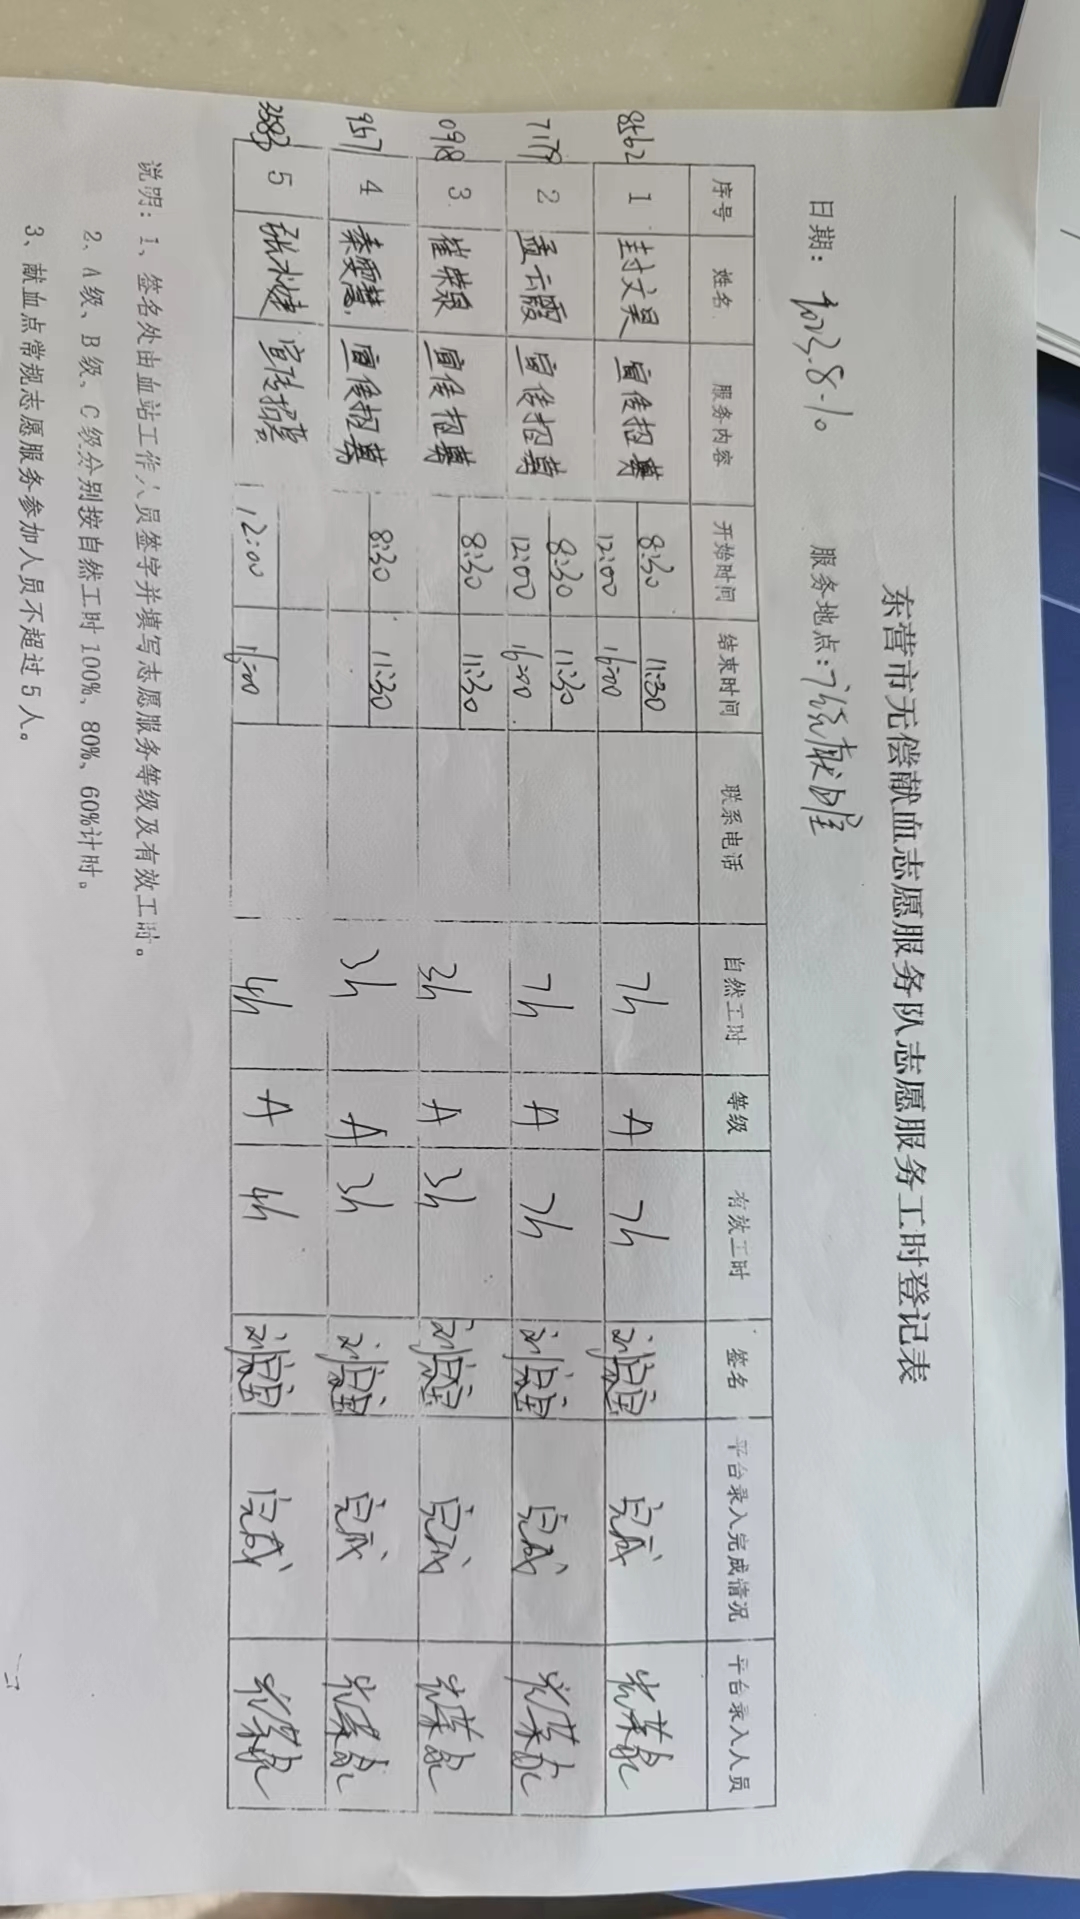 东营市无偿献血志愿服务队志愿服务工时登记表
日期：2023.8.10 服务地点：
序号 姓名 服务内容 开始时间 结束时间 联系电话 自然工时 等级 有效工时 签名 平台录入完成情况 平台录入人员
8562 1 封文昊 宣传招募 8:30 11:30 7h A 7h 完成
12:00 16:00
7179 2 孟云霞 宣传招募 8:30 11:30 7h A 7h 完成
12:00 16:00
0918 3 崔荣泉 宣传招募 8:30 11:30 3h A 3h 完成
957 4 秦雯慧 宣传招募 8:30 11:30 3h A 3h 完成
5 宣传招募 12:00 16:00 4h A 4h 完成
说明：1、签名处由血站工作人员签字并填写志愿服务等级及有效工时。
2、A级、B级、C级分别按自然工时100%、80%、60%计时。
3、献血点常规志愿服务参加人员不超过5人。